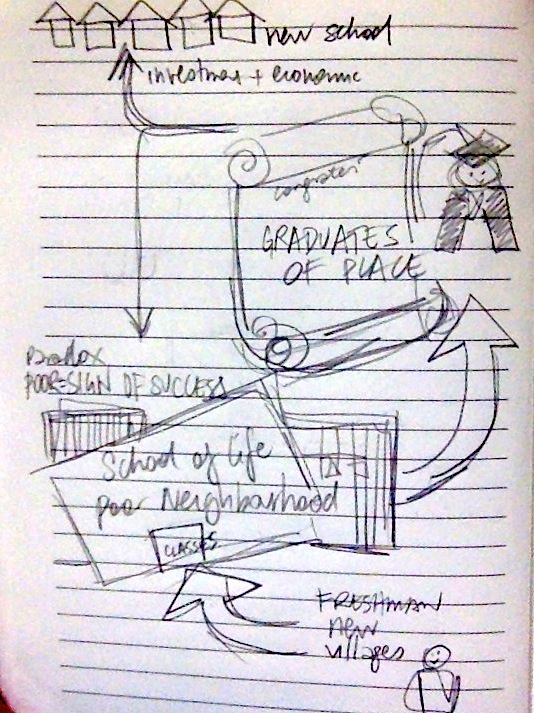 new school
investmen + economic
congrates!
GRADUATES
OF PLACE
Paradox
POOR-SIGN OF SUCCESS
School of life
poor Neighborhood
CLASSES
FRESHMAN
new
villages